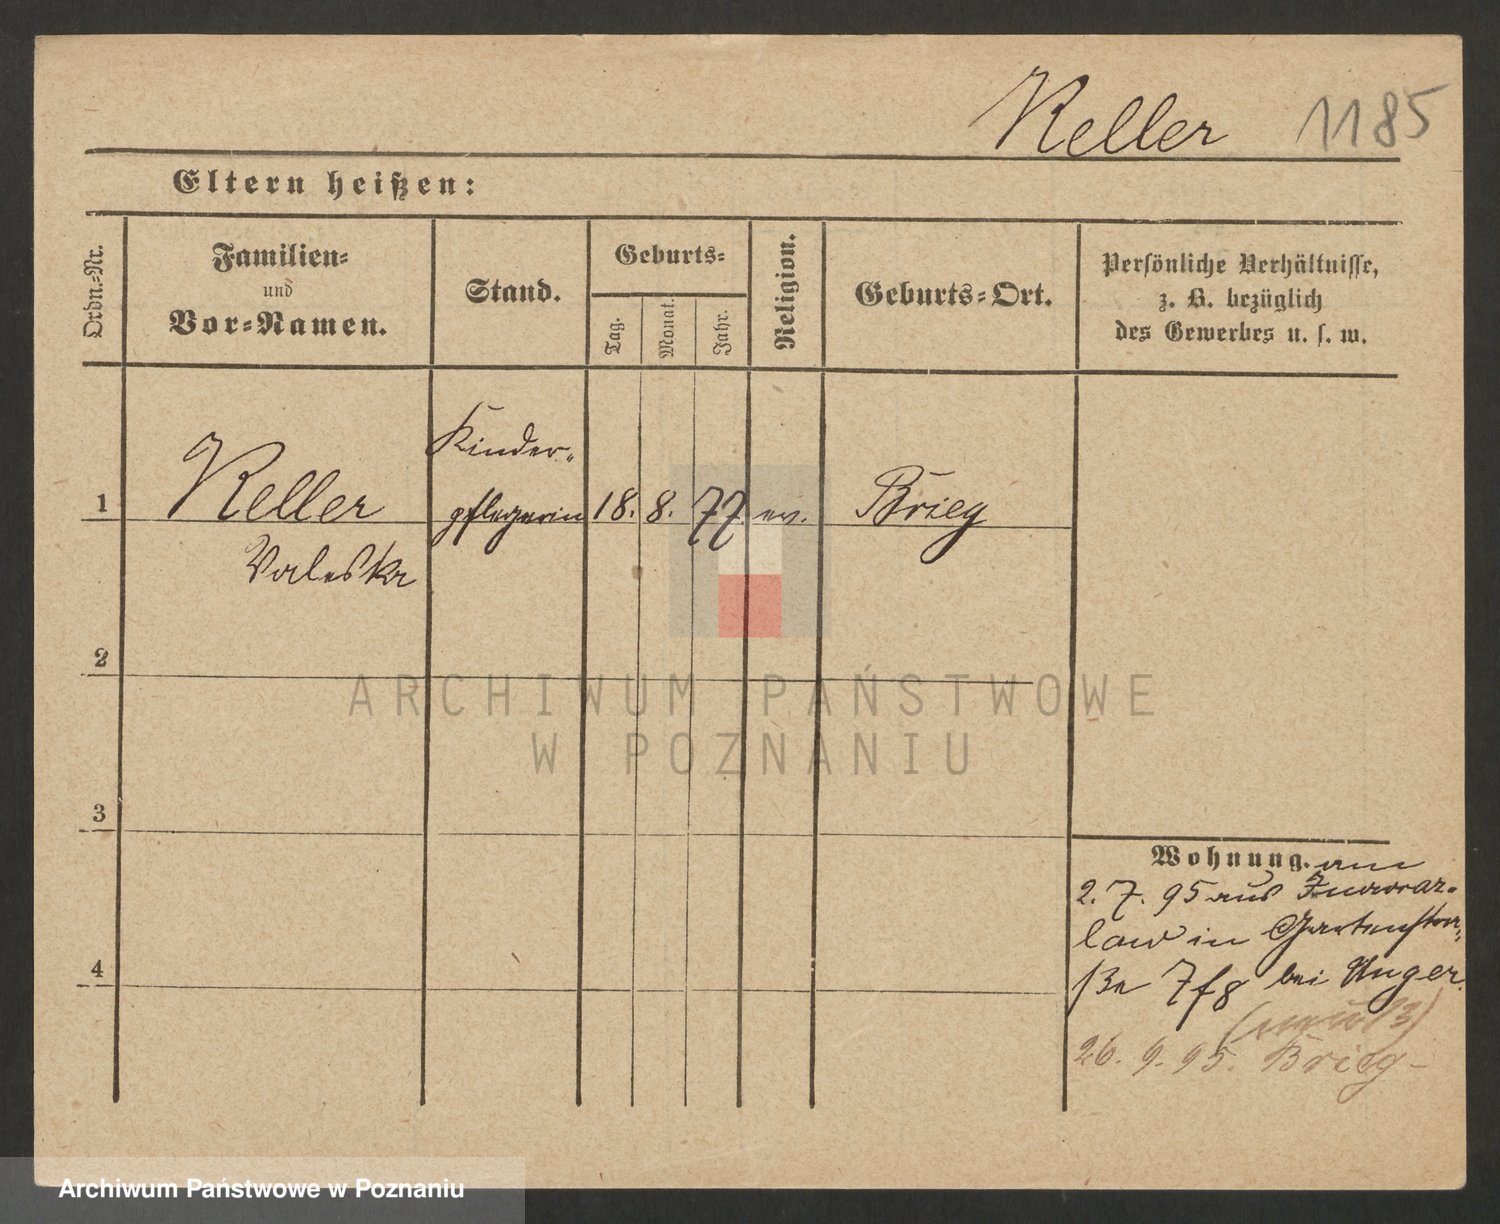 Keller 1185
Eltern heißen:
Ordn.-Nr.
Familien-
und
Vor-Namen.
Stand.
Geburts-
Tag.
Monat.
Jahr.
Religion.
Geburts-Ort.
Persönliche Verhältnisse,
z. B. bezüglich
des Gewerbes u. s. w.
1
Keller
Valeska
Kinder-
pflegerin
18. 8. 77. ev.
Brieg
2
3
4
Wohnung. am
2. 7. 95 aus Inowraz-
law in Gartenstra-
ße 7 bei Unger.
26. 9. 95. Brieg
ARCHIWUM PAŃSTWOWE
W POZNANIU
Archiwum Państwowe w Poznaniu